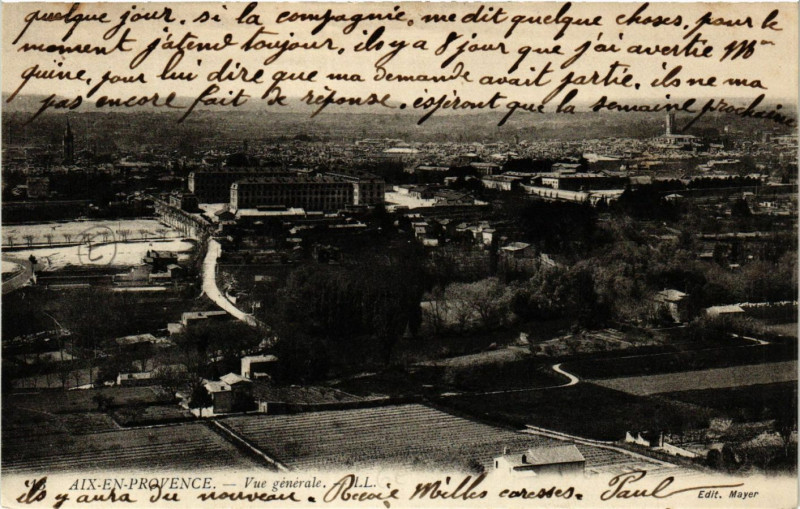 quelque jour. si la compagnie, me dit quelque choses, pour le
moment j'atend toujour, ils y a 8 jour que j'ai avertie Mme
quine, pour lui dire que ma demande avait partie. ils ne ma
pas encore fait de réponse. espéront que la semaine prochaine
AIX-EN-PROVENCE. — Vue générale. — LL.
ils y aura du nouveau. Reçoie Milles caresses. Paul
Edit. Mayer